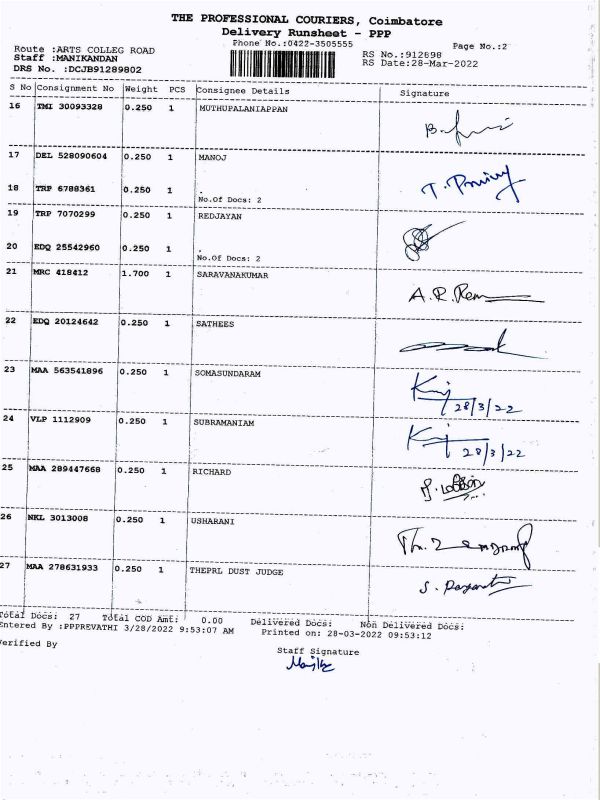 THE PROFESSIONAL COURIERS, Coimbatore
Delivery Runsheet - PPP
Phone No.:0422-3505555
Page No.:2
Route :ARTS COLLEG ROAD
Staff :MANIKANDAN
DRS No. :DCJB91289802
RS No.:912698
RS Date:28-Mar-2022
S No Consignment No Weight PCS Consignee Details Signature
16 TMI 30093328 0.250 1 MUTHUPALANIAPPAN
17 DEL 528090604 0.250 1 MANOJ
18 TRP 6788361 0.250 1 .
No.Of Docs: 2
19 TRP 7070299 0.250 1 REDJAYAN
20 EDQ 25542960 0.250 1 .
No.Of Docs: 2
21 MRC 418412 1.700 1 SARAVANAKUMAR
A.R.Rem
22 EDQ 20124642 0.250 1 SATHEES
23 MAA 563541896 0.250 1 SOMASUNDARAM
28/3/22
24 VLP 1112909 0.250 1 SUBRAMANIAM
28/3/22
25 MAA 289447668 0.250 1 RICHARD
26 NKL 3013008 0.250 1 USHARANI
27 MAA 278631933 0.250 1 THEPRL DUST JUDGE
Total Docs: 27 Total COD Amt: 0.00 Delivered Docs: Non Delivered Docs:
Entered By :PPPREVATHI 3/28/2022 9:53:07 AM Printed on: 28-03-2022 09:53:12
Verified By
Staff Signature